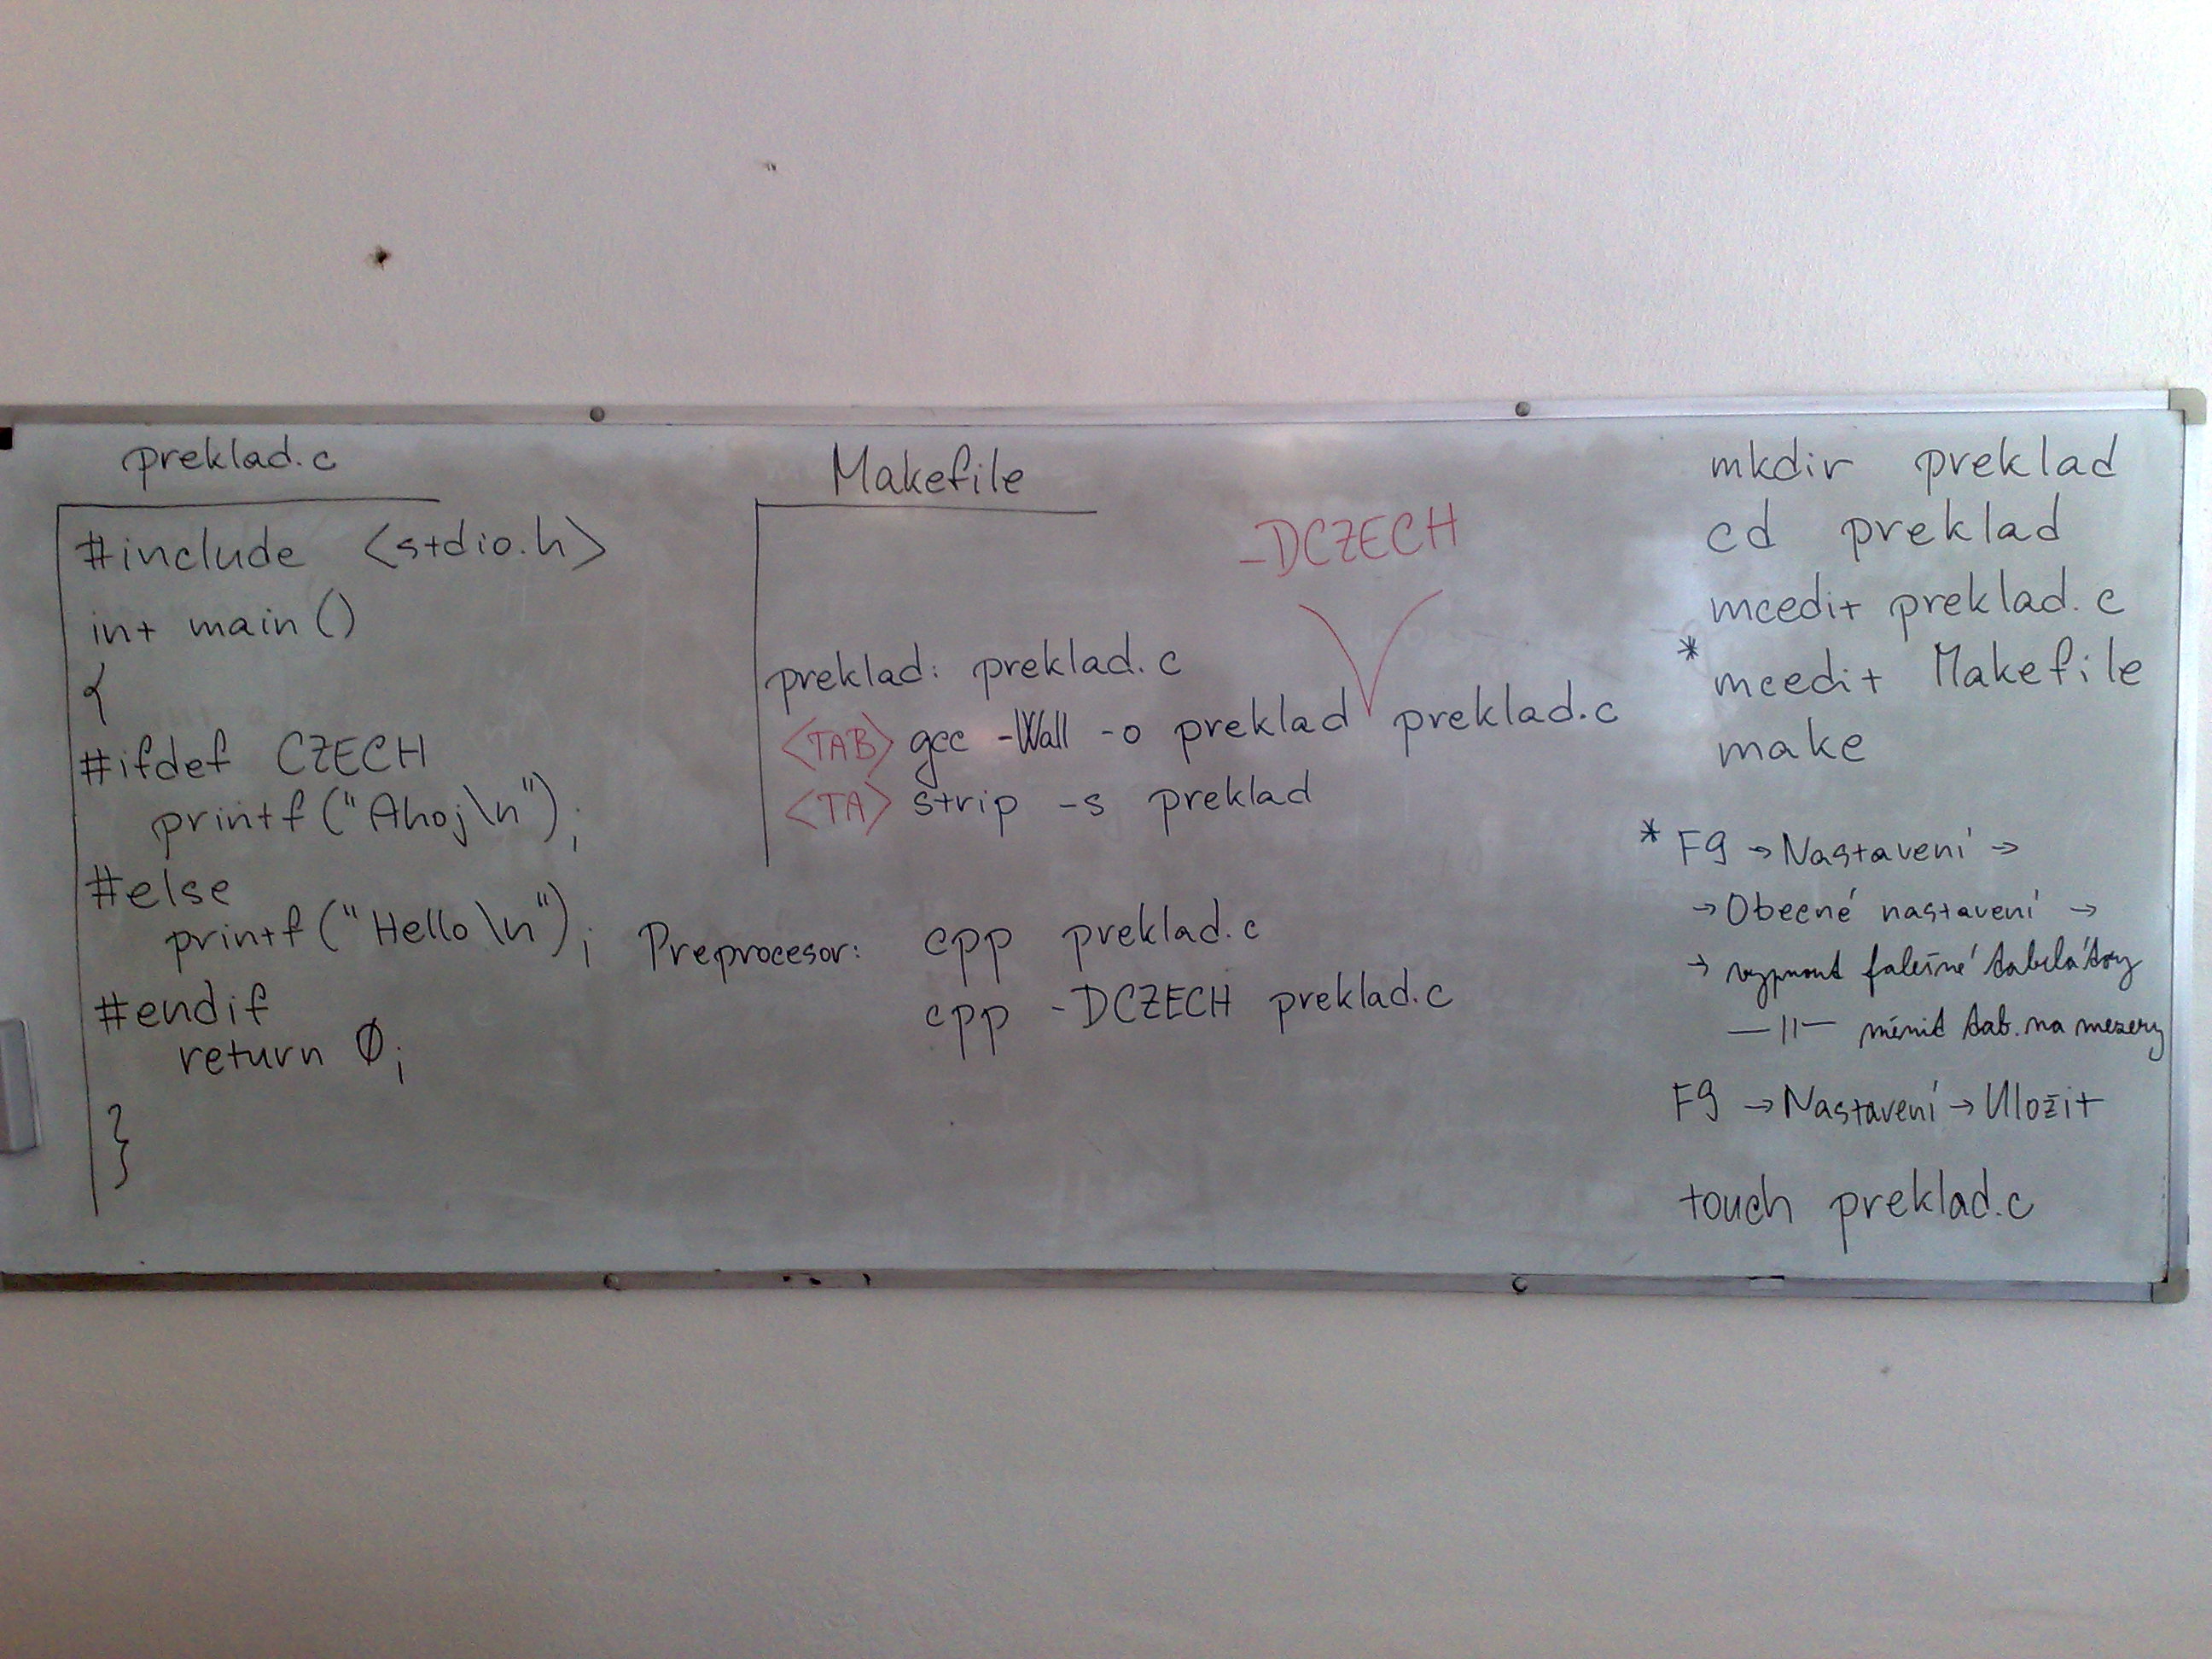 preklad.c
#include <stdio.h>
int main()
{
#ifdef CZECH
printf("Ahoj\n");
#else
printf("Hello\n");
#endif
return 0;
}
Makefile
-DCZECH
preklad: preklad.c
<TAB> gcc -Wall -o preklad preklad.c
<TA> strip -s preklad
Preprocesor: cpp preklad.c
cpp -DCZECH preklad.c
mkdir preklad
cd preklad
mcedit preklad.c
* mcedit Makefile
make
* F9 → Nastavení →
→ Obecné nastavení →
→ vypnout falešné tabulátory
—||— měnit tab. na mezery
F9 → Nastavení → Uložit
touch preklad.c